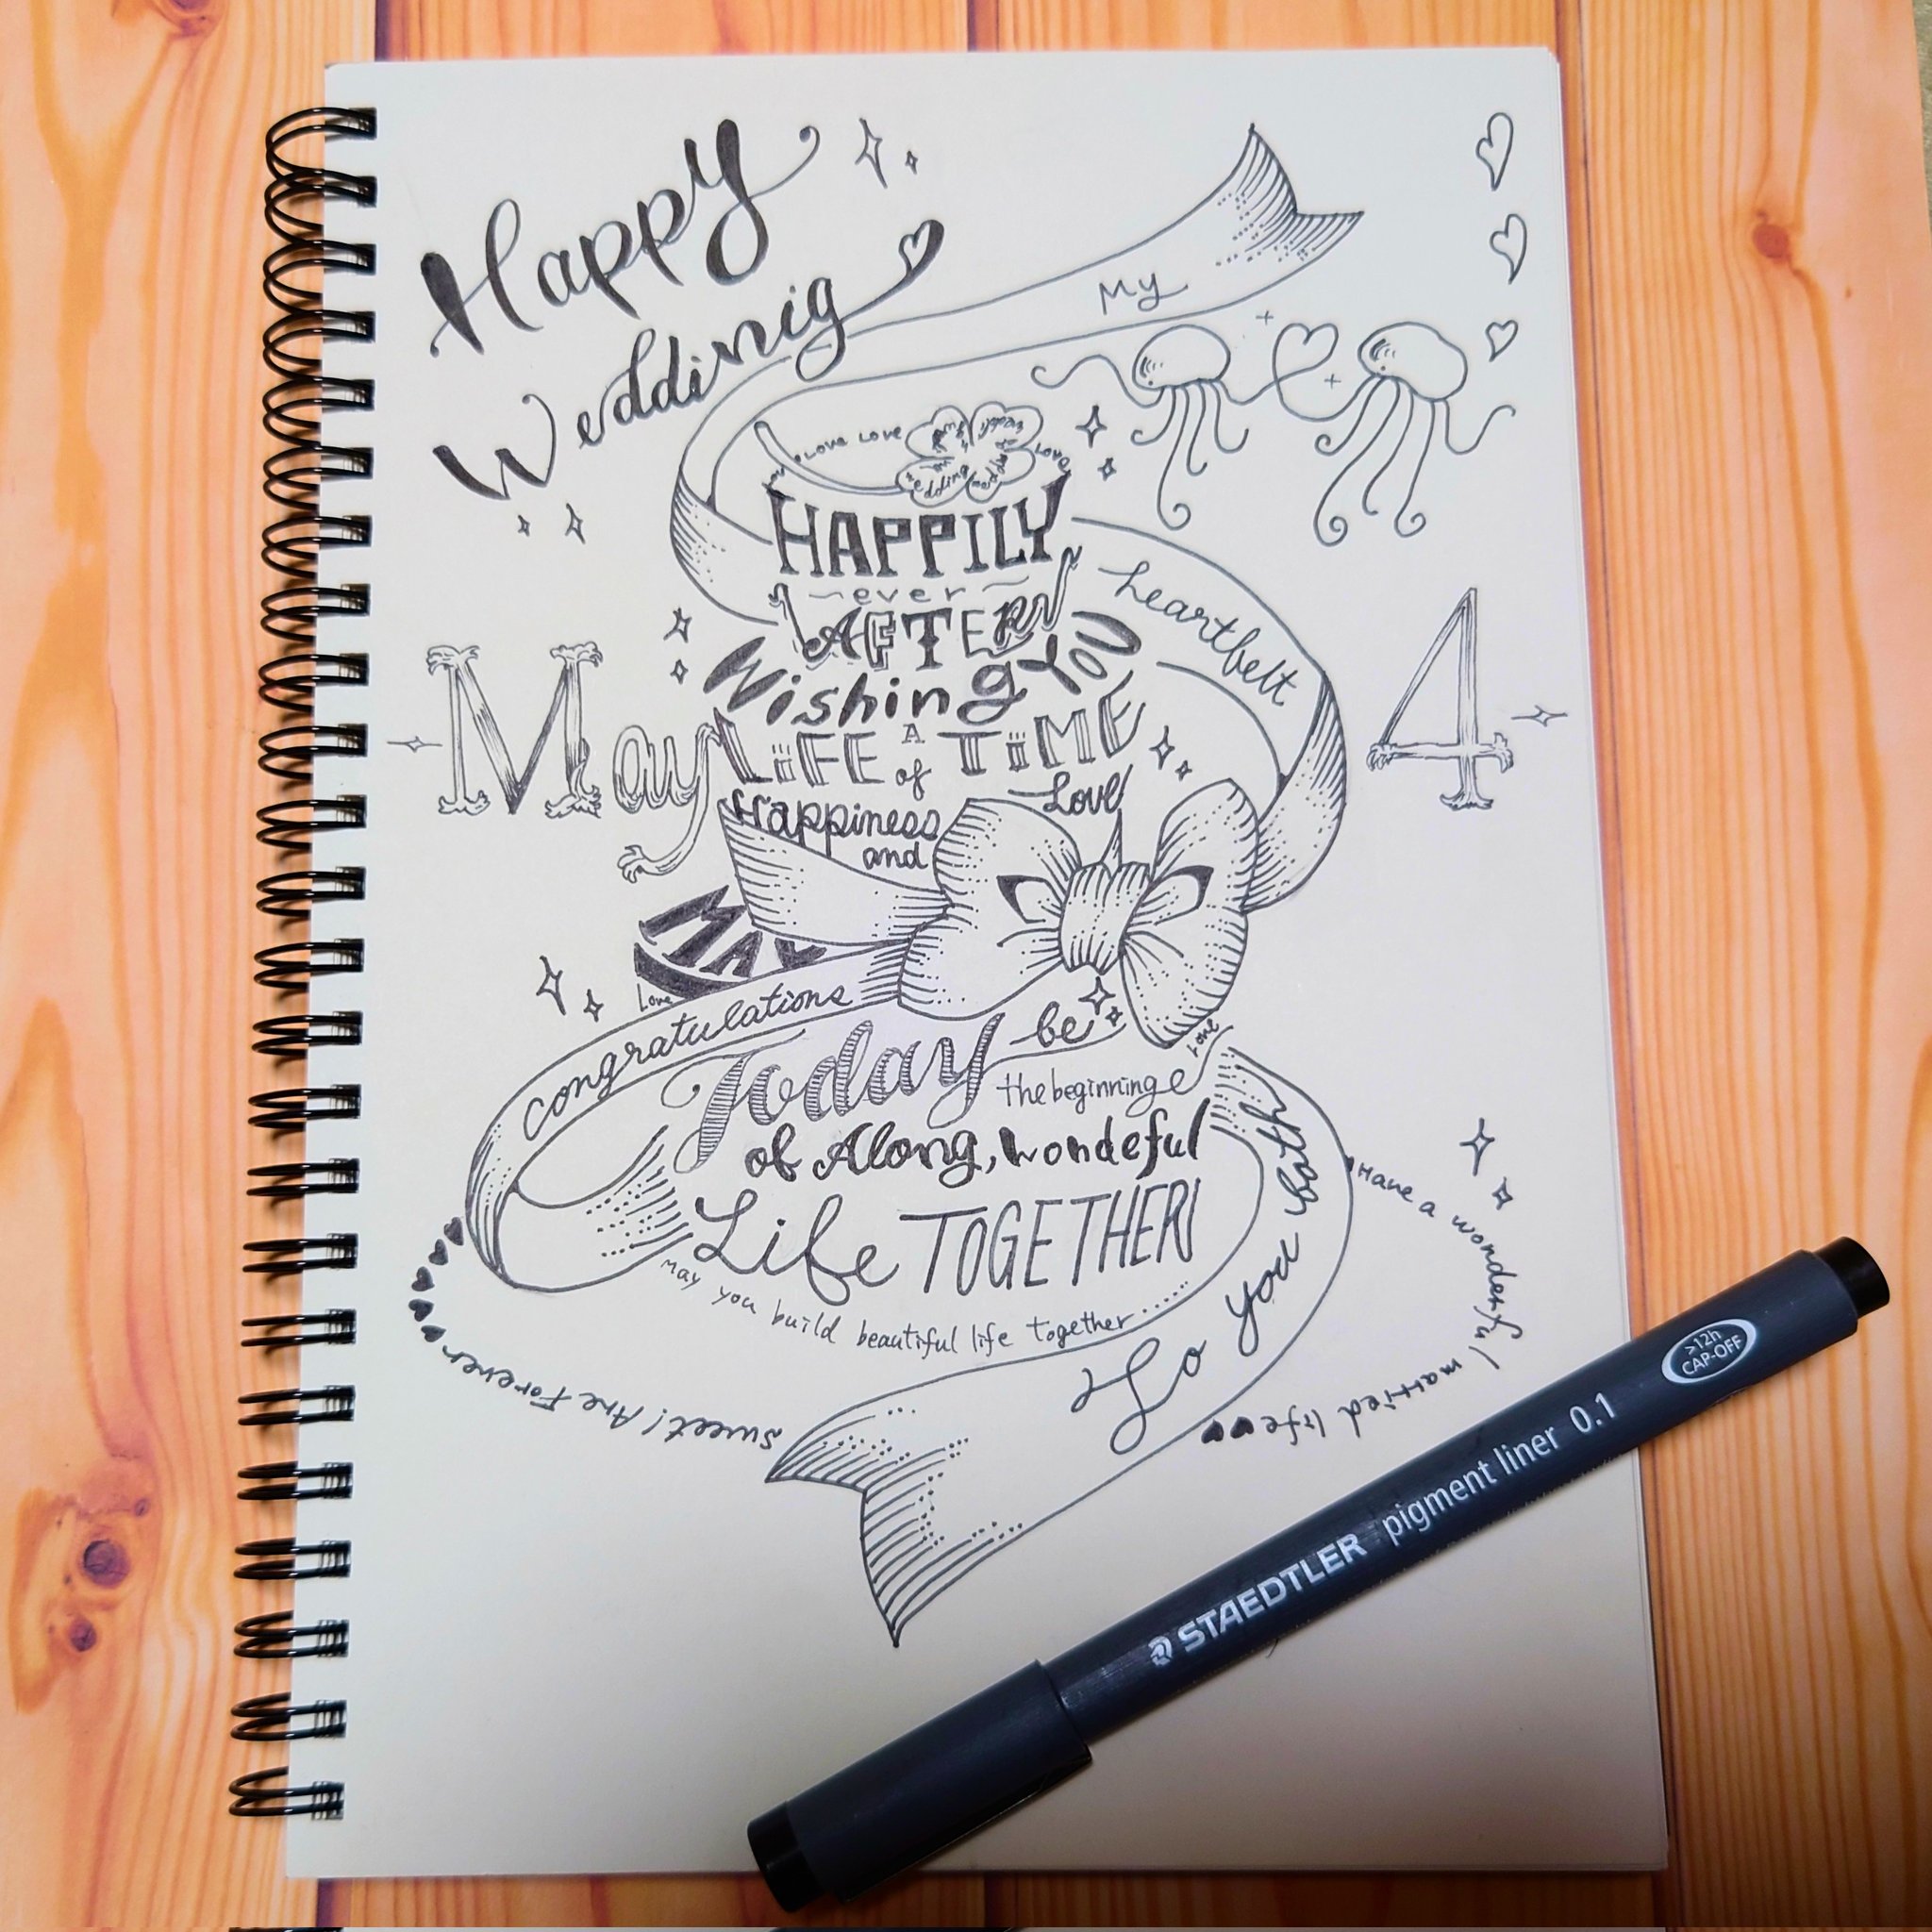 Happy
Weddinig
My
LOVE LOVE
LOVE
HAPPILY
ever
AFTER
Wishing YOU
A
LiFE of TiME
Happiness
and
Love
heartfelt
May
4
MAY
Love
congratulations
Today be
Love
the beginning
of Along, wondeful
Life TOGETHER!
may you build beautiful life together......
To you both
Have a wonderful married life
sweet! Are Forever
STAEDTLER pigment liner 0.1
>12h
CAP-OFF